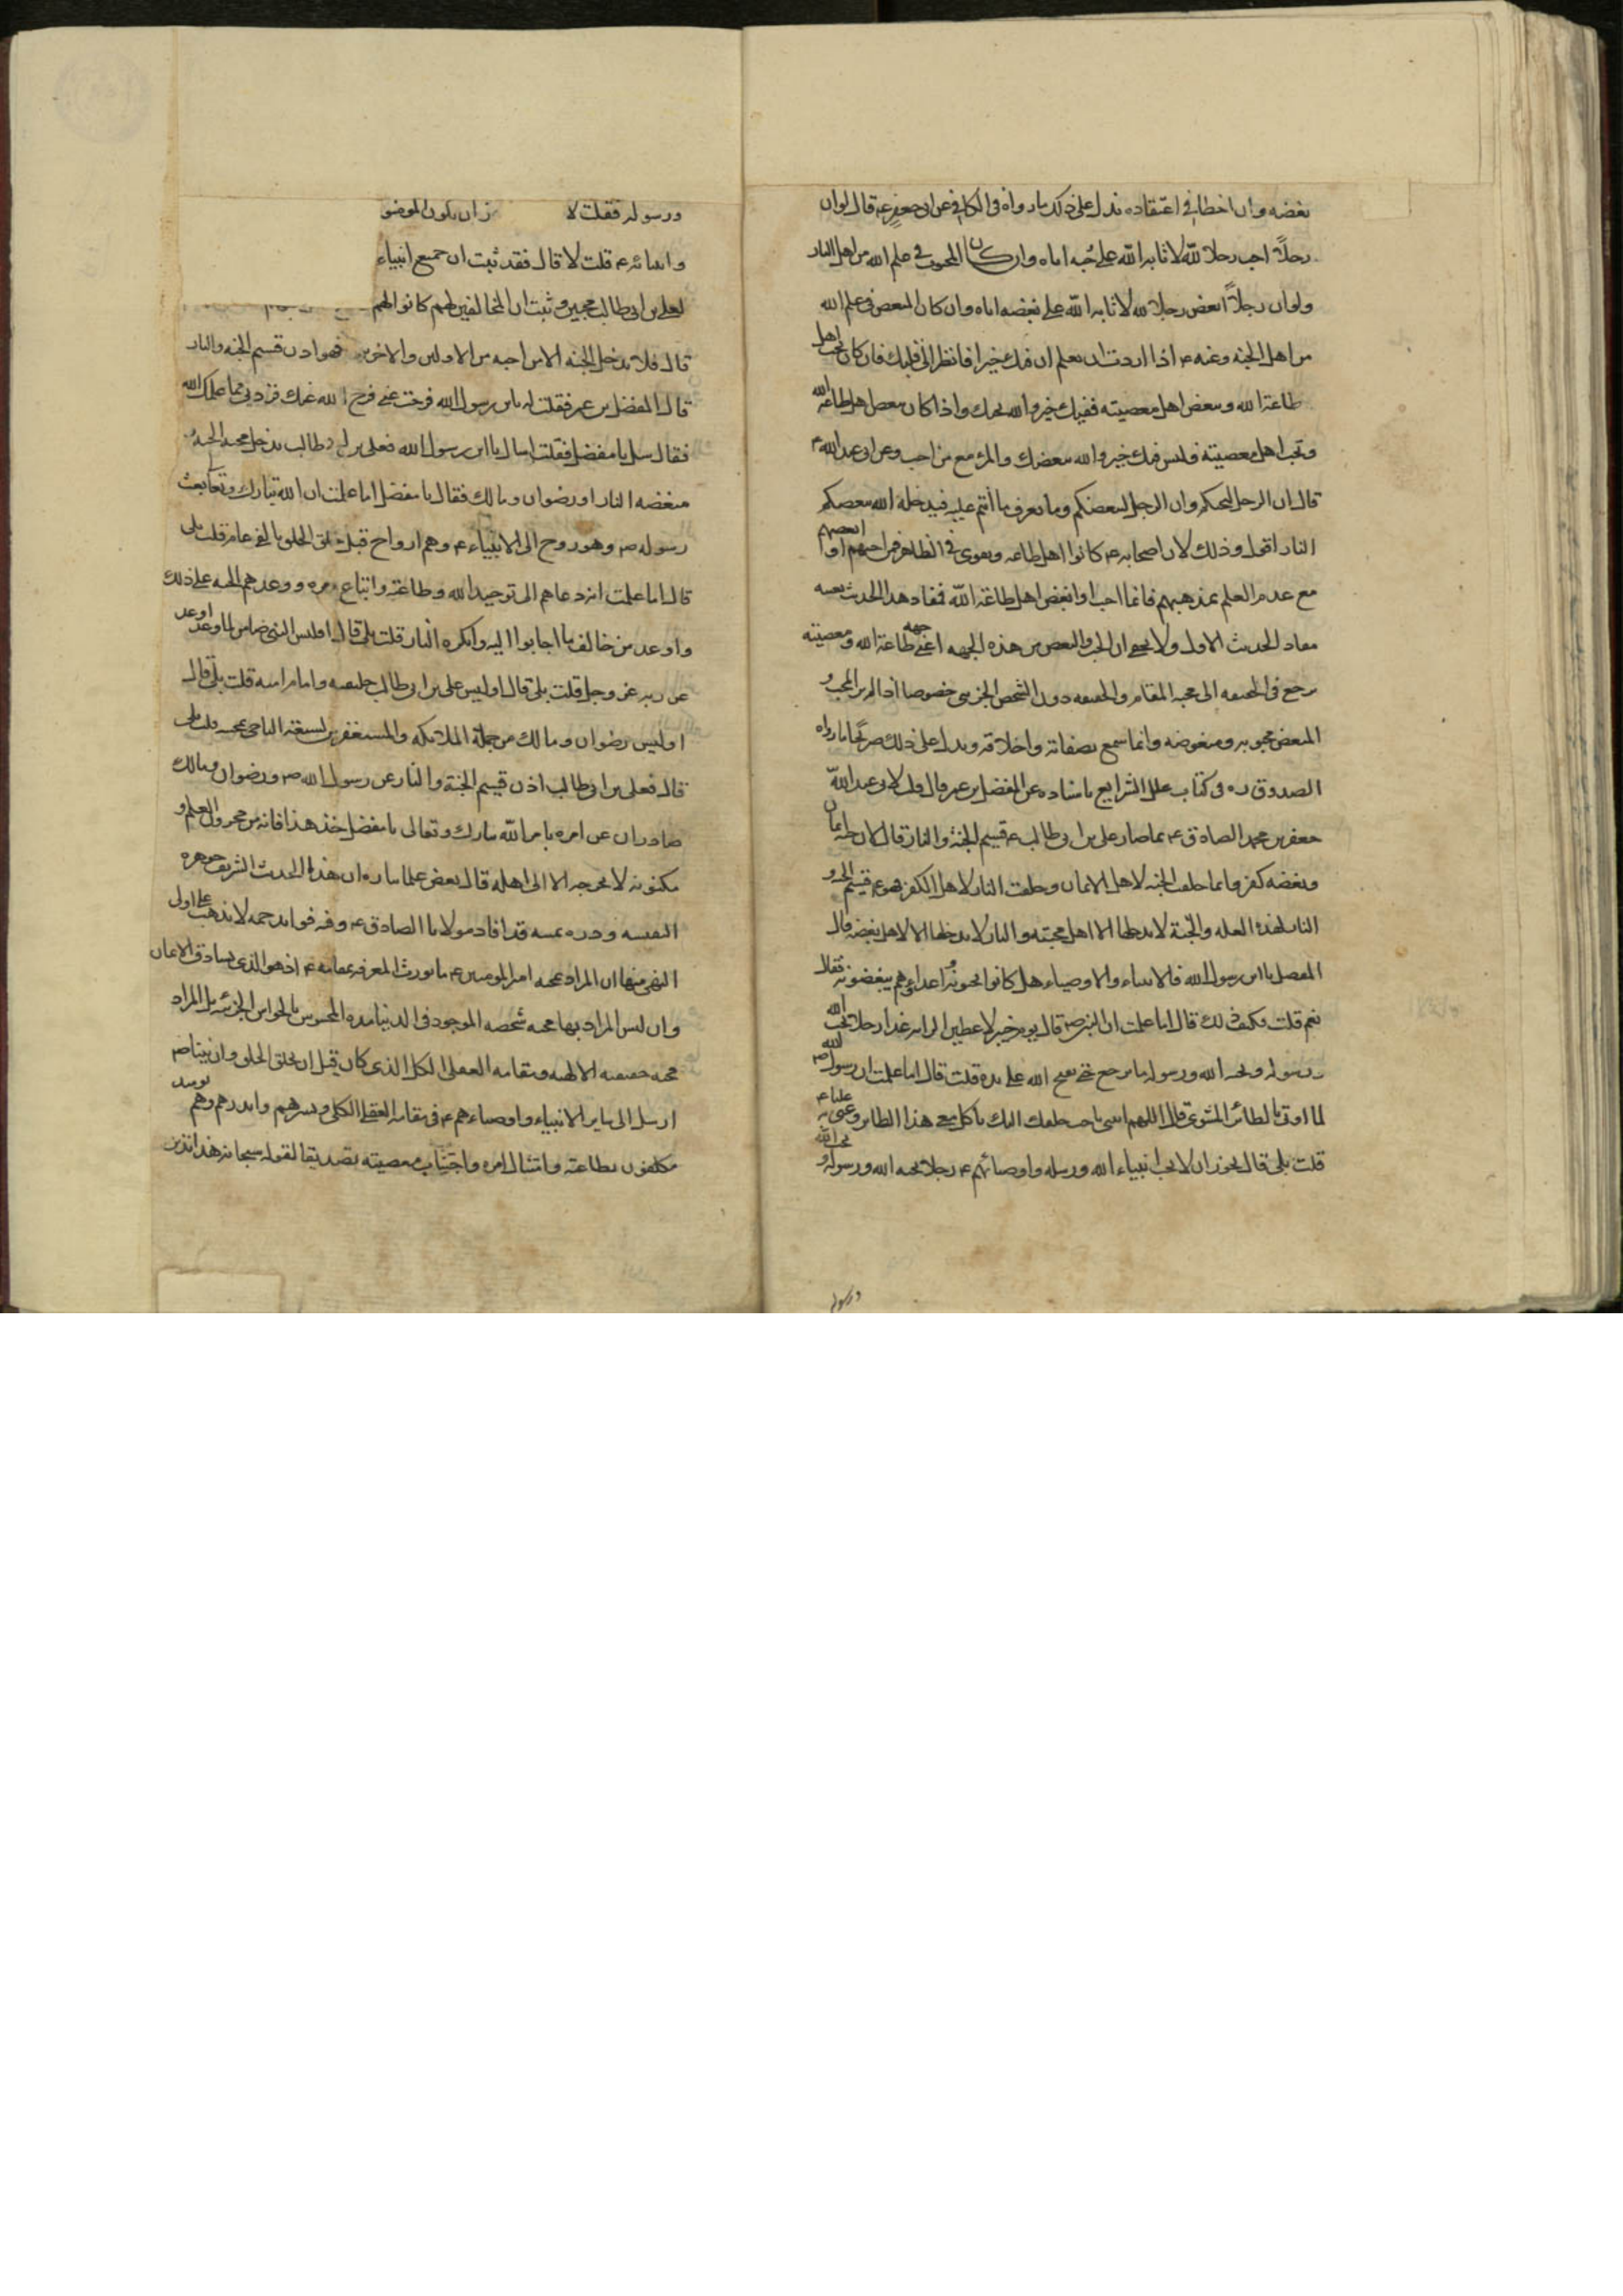 بغضه وان اخطا في اعتقاده يدل على ذلك ما رواه في الكافي عن ابي جعفر ع قال لو ان
رجلاً احب رجلا لله لاثابه الله على حبه اياه وان كان المحبوب في علم الله من اهل النار
ولو ان رجلاً ابغض رجلا لله لاثابه الله على بغضه اياه وان كان المبغض في علم الله
من اهل الجنة وعنه ع اذا اردت ان تعلم ان فيك خيرا فانظر الى قلبك فان كان يحب اهل
طاعة الله ويبغض اهل معصيته ففيك خير والله يحبك واذا كان يبغض اهل طاعة الله
ويحب اهل معصيته فليس فيك خير والله يبغضك والمرء مع من احب وعن ابي عبد الله ع
قال ان الرجل ليحبكم وان الرجل ليبغضكم وما يعرف ما انتم عليه فيدخله الله ببغضكم
النار اقول وذلك لان اصحابه ع كانوا اهل طاعة وتقوى في الظاهر فمن احبهم او ابغضهم
مع عدم العلم بمذهبهم فانما احب او ابغض اهل طاعة الله فمفاد هذا الحديث بعينه
مفاد الحديث الاول ولا يخفى ان الحب والبغض من هذه الجهة اعني جهة طاعة الله ومعصيته
يرجع في الحقيقة الى محبة المقام والحقيقة دون الشخص الجزئي خصوصا اذا لم ير المحب و
المبغض محبوبه ومبغوضه وانما سمع بصفاته واخلاقه ويدل على ذلك صريحا ما رواه
الصدوق ره في كتاب علل الشرايع باسناده عن المفضل بن عمر قال قلت لابي عبد الله
جعفر بن محمد الصادق ع بما صار علي بن ابي طالب ع قسيم الجنة والنار قال لان حبه ايمان
وبغضه كفر وانما خلقت الجنة لاهل الايمان وخلقت النار لاهل الكفر فهو ع قسيم الجنة و
النار لهذه العلة والجنة لا يدخلها الا اهل محبته والنار لا يدخلها الا لاهل بغضه قال
المفضل يا ابن رسول الله فالانبياء والاوصياء هل كانوا يحبونه واعداؤهم يبغضونه فقال
نعم قلت فكيف ذلك قال اما علمت ان النبي ص قال يوم خيبر لاعطين الراية غدا رجلا يحب الله
ورسوله ويحبه الله ورسوله ما يرجع حتى يفتح الله على يده قلت قال اما علمت ان رسول الله ص
لما اوتي بالطائر المشوي قال اللهم ائتني باحب خلقك اليك ياكل معي هذا الطاير وعنى به عليا ع
قلت بلى قال يجوز ان لا يحب انبياء الله ورسله واوصيائهم ع رجلا يحبه الله ورسوله و يحب الله
ورسوله
ورسوله فقلت لا ز ان يكون المومنو
وانبيائه ع قلت لا قال فقد ثبت ان جميع انبياء
لعلي بن ابي طالب محبين وثبت ان المخالفين لهم كانوا لهم
قال فلا يدخل الجنة الا من احبه من الاولين والاخرين فهو اذن قسيم الجنة والنار
قال المفضل بن عمر فقلت له يابن رسول الله فرجت عني فرج الله عنك فزدني مما علمك الله
فقال سل يا مفضل فقلت اسال يا ابن رسول الله فعلي بن ابي طالب يدخل محبه الجنة و
مبغضه النار او رضوان ومالك فقال يا مفضل اما علمت ان الله تبارك وتعالى بعث
رسوله ص وهو روح الى الانبياء ع وهم ارواح قبل خلق الخلق بالفي عام قلت بلى
قال اما علمت انه دعاهم الى توحيد الله وطاعته واتباع امره ووعدهم الجنة على ذلك
واوعد من خالف ما اجابوا اليه وانكره النار قلت بلى قال افليس النبي ضامن لما وعد واوعد
عن ربه عز وجل قلت بلى قال اوليس علي بن ابي طالب خليفته وامام امته قلت بلى قال
اوليس رضوان ومالك من جملة الملائكة والمستغفرين لشيعته الناجين بمحبته قلت بلى
قال فعلي بن ابي طالب اذن قسيم الجنة والنار عن رسول الله ص ورضوان ومالك
صادران عن امره بامر الله تبارك وتعالى يا مفضل خذ هذا فانه من مخزون العلم و
مكنونه لا تخرجه الا الى اهله قال بعض علمائنا ره ان هذا الحديث الشريف جوهره
النفيسه ودره ثمينه قد افاد مولانا الصادق ع وفيه فوائد جمة لا يذهب على اولى
النهى منها ان المراد بمحبة امير المومنين ع ما يورث المعرفة بمقامه ع اذ هو الذي يساوق الايمان
وان ليس المراد بها محبة شخصه الموجود في الدنيا مدة المحسوس بالحواس الجزئية بل المراد
محبة حقيقته الالهية ومقامه العقلي الكلي الذي كان قبل ان يخلق الخلق وان نبينا ص
ارسل الى ساير الانبياء واوصياءهم ع في مقامه العقلي الكلي وبشرهم وانذرهم وهم يومئذ
مكلفون بطاعته وامتثال امره واجتناب معصيته تصديقا لقوله سبحانه هذا نذير